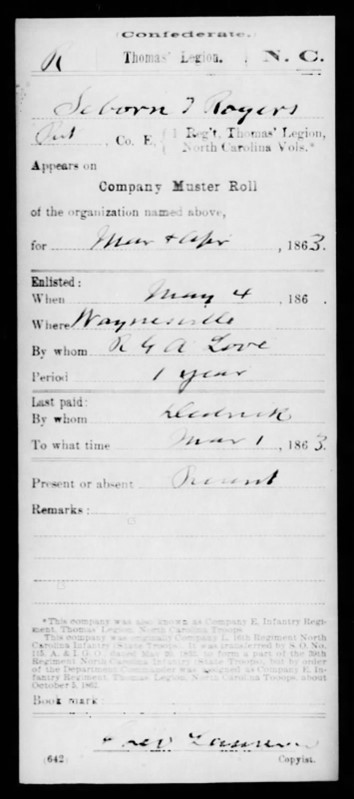 (Confederate.)
R Thomas' Legion. N. C.
Seborn T Rogers
Pvt, Co. E, { 1 Reg't, Thomas' Legion,
North Carolina Vols.*
Appears on
Company Muster Roll
of the organization named above,
for Mar & Apr, 1863.
Enlisted:
When May 4, 186 .
Where Waynesville
By whom R G A Love
Period 1 year
Last paid:
By whom Dedrick
To what time Mar 1, 1863.
Present or absent Present
Remarks:
*This company was also known as Company E, Infantry Regi-
ment, Thomas' Legion, North Carolina Troops.
This company was originally Company L, 16th Regiment North
Carolina Infantry (State Troops). It was transferred by S. O. No.
, A. & I. G. O., dated May 1862, to form a part of the 39th
Regiment North Carolina Infantry (State Troops), but by order
of the Department Commander was assigned as Company E, In-
fantry Regiment, Thomas' Legion, North Carolina Troops, about
October 1862.
Book mark:
(642) Copyist.